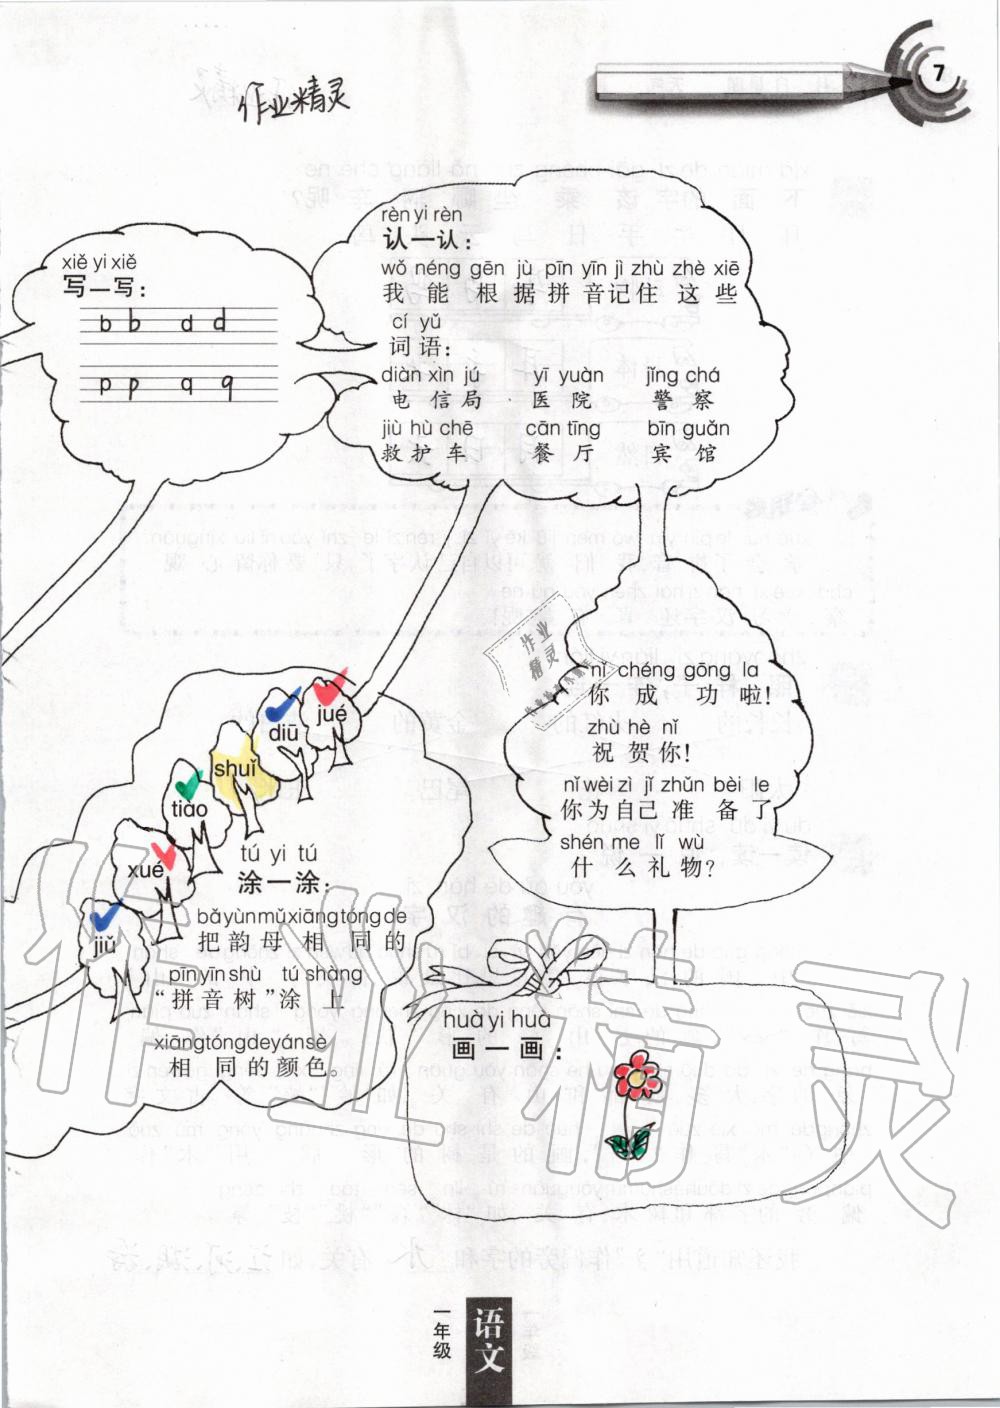 作业精灵
7
xiě yi xiě
写一写：
b b d d
p p q q
rèn yi rèn
认一认：
wǒ néng gēn jù pīn yīn jì zhù zhè xiē
我 能 根 据 拼 音 记 住 这 些
cí yǔ
词 语：
diàn xìn jú yī yuàn jǐng chá
电 信 局 医 院 警 察
jiù hù chē cān tīng bīn guǎn
救 护 车 餐 厅 宾 馆
作业
精灵
nǐ chéng gōng la
你 成 功 啦！
zhù hè nǐ
祝 贺 你！
nǐ wèi zì jǐ zhǔn bèi le
你 为 自 己 准 备 了
shén me lǐ wù
什 么 礼 物？
jué
diū
shuǐ
tiào
xué
jiǔ
tú yi tú
涂一涂：
bǎ yùn mǔ xiāng tóng de
把 韵 母 相 同 的
pīn yīn shù tú shàng
“拼 音 树”涂 上
xiāng tóng de yán sè
相 同 的 颜 色。
huà yi huà
画 一 画：
作业精灵
一年级
语文